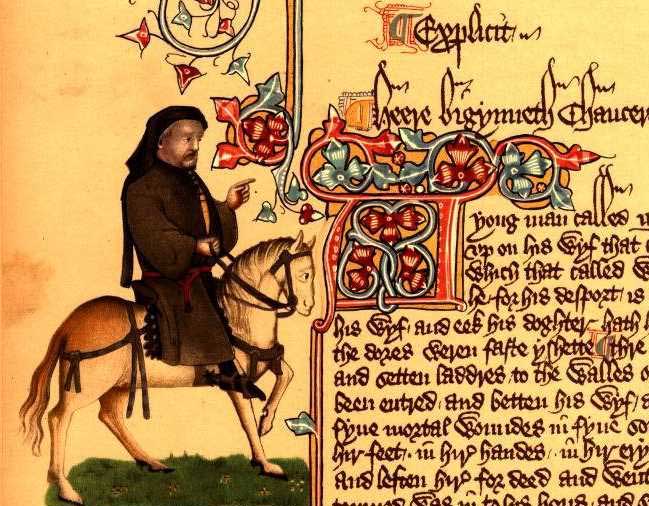 Explicit
Heere bigynneth Chaucer
A yong man called
vp on his wyf that
which that called
he for his desport is
his wyf and eek his doghter hath
the dores weren faste yshette thre
and setten laddres to the walles
been entred and betten his wyf
fyue mortal woundes in fyue
hir feet in hir handes in hir
and leften hir for deed and
turned was in to his hous and